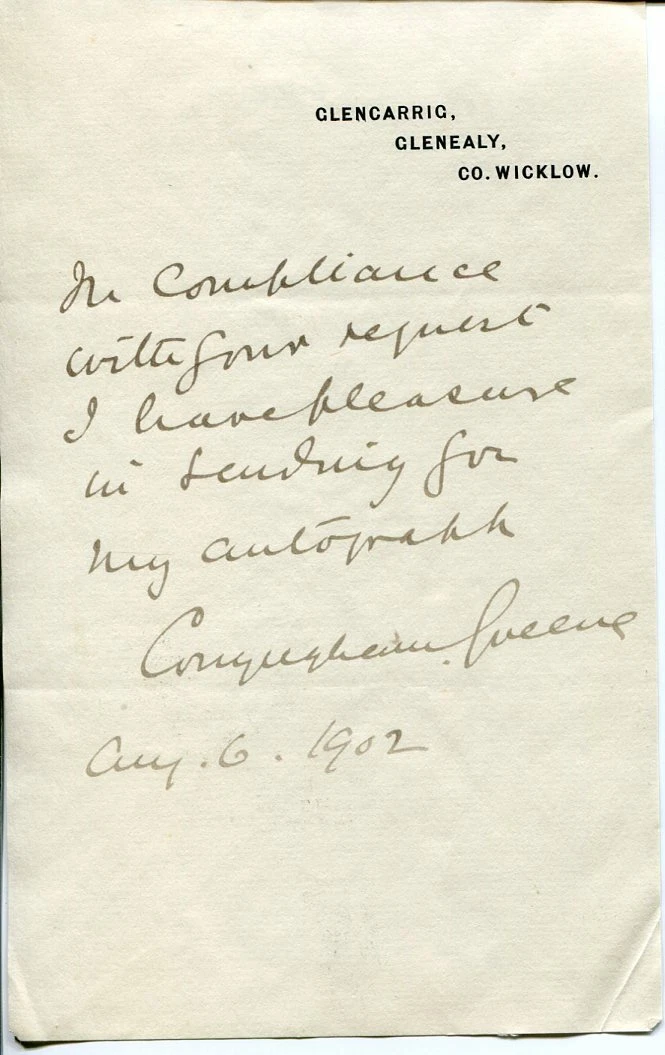 GLENCARRIG,
GLENEALY,
CO. WICKLOW.
In compliance
with your request
I have pleasure
in sending you
my autograph
Conyngham Greene
Aug. 6. 1902